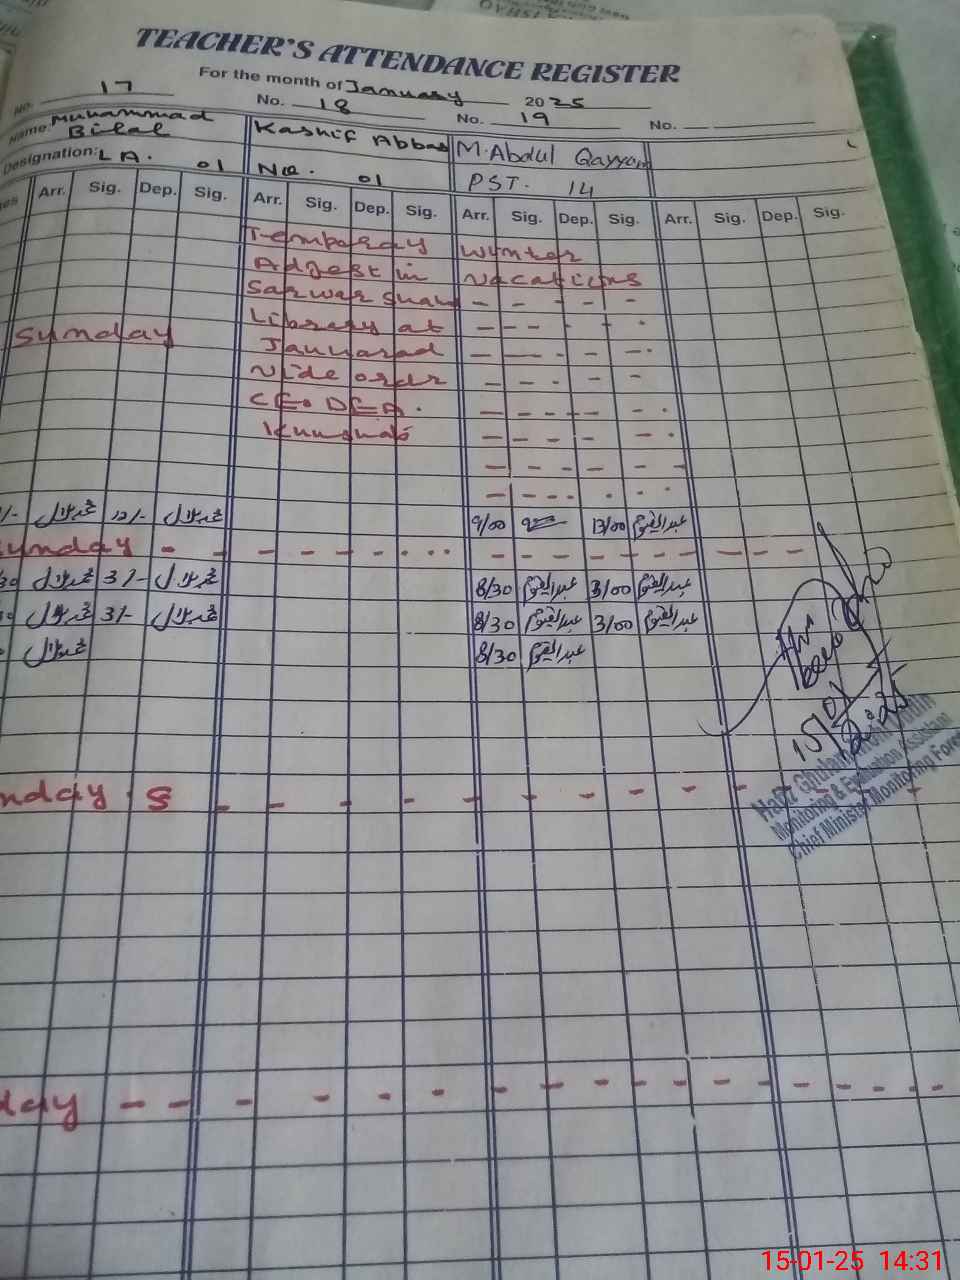 TEACHER'S ATTENDANCE REGISTER
For the month of January 2025
No. 17 No. 18 No. 19 No.
Name: Muhammad Bilal Kashif Abbas M. Abdul Qayyum
Designation: L A. 01 Nq. 01 PST. 14
Arr. Sig. Dep. Sig. Arr. Sig. Dep. Sig. Arr. Sig. Dep. Sig. Arr. Sig. Dep. Sig.
Temporay Winter
Adjest in Vacations
Sarwar - - - - -
Sunday Library at - - - - - -
- - - - - -
Vide order - - - - -
CEO. DEA. - - - - - -
- - - - - -
- - - - - -
- - - - - -
محمد بلال 12/- محمد بلال 9/00 13/00 عبدالقیوم
Sunday - - - - - - - - - - - - - - - - -
محمد بلال 3/- محمد بلال 8/30 عبدالقیوم 3/00 عبدالقیوم
محمد بلال 3/- محمد بلال 8/30 عبدالقیوم 3/00 عبدالقیوم
محمد بلال 8/30 عبدالقیوم
15/01/2025
nday S - - - - - - - - - - - -
Hafiz Ghulam
Monitoring & Evaluation Assistant
Chief Minister Monitoring Force
day - - - - - - - - - - - - - - -
15-01-25 14:31